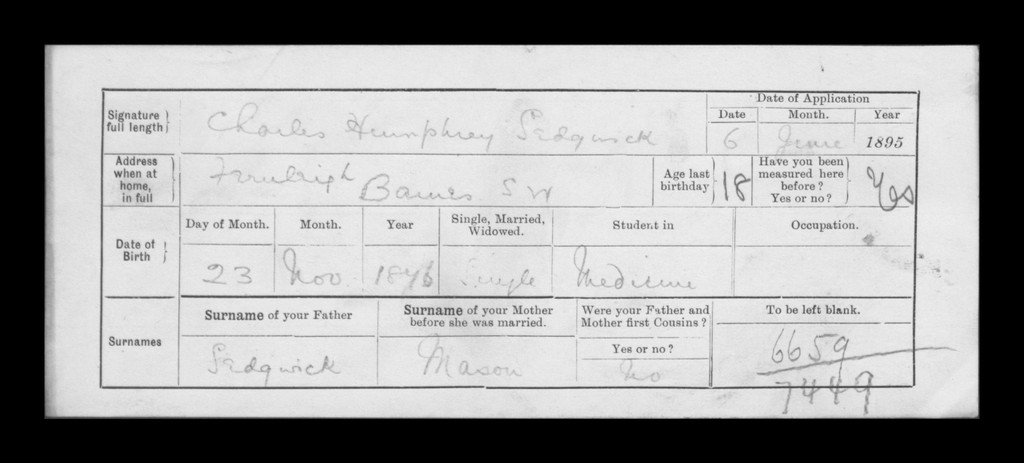 Signature full length } Charles Humphrey Sedgwick
Date of Application
Date Month. Year
6 June 1895
Address when at home, in full } Fernleigh Barnes S W
Age last birthday } 18
Have you been measured here before? Yes or no? } Yes
Date of Birth }
Day of Month. Month. Year Single, Married, Widowed. Student in Occupation.
23 Nov 1876 Single Medicine
Surnames
Surname of your Father Surname of your Mother before she was married. Were your Father and Mother first Cousins? To be left blank.
Yes or no?
Sedgwick Mason No
6659
7449